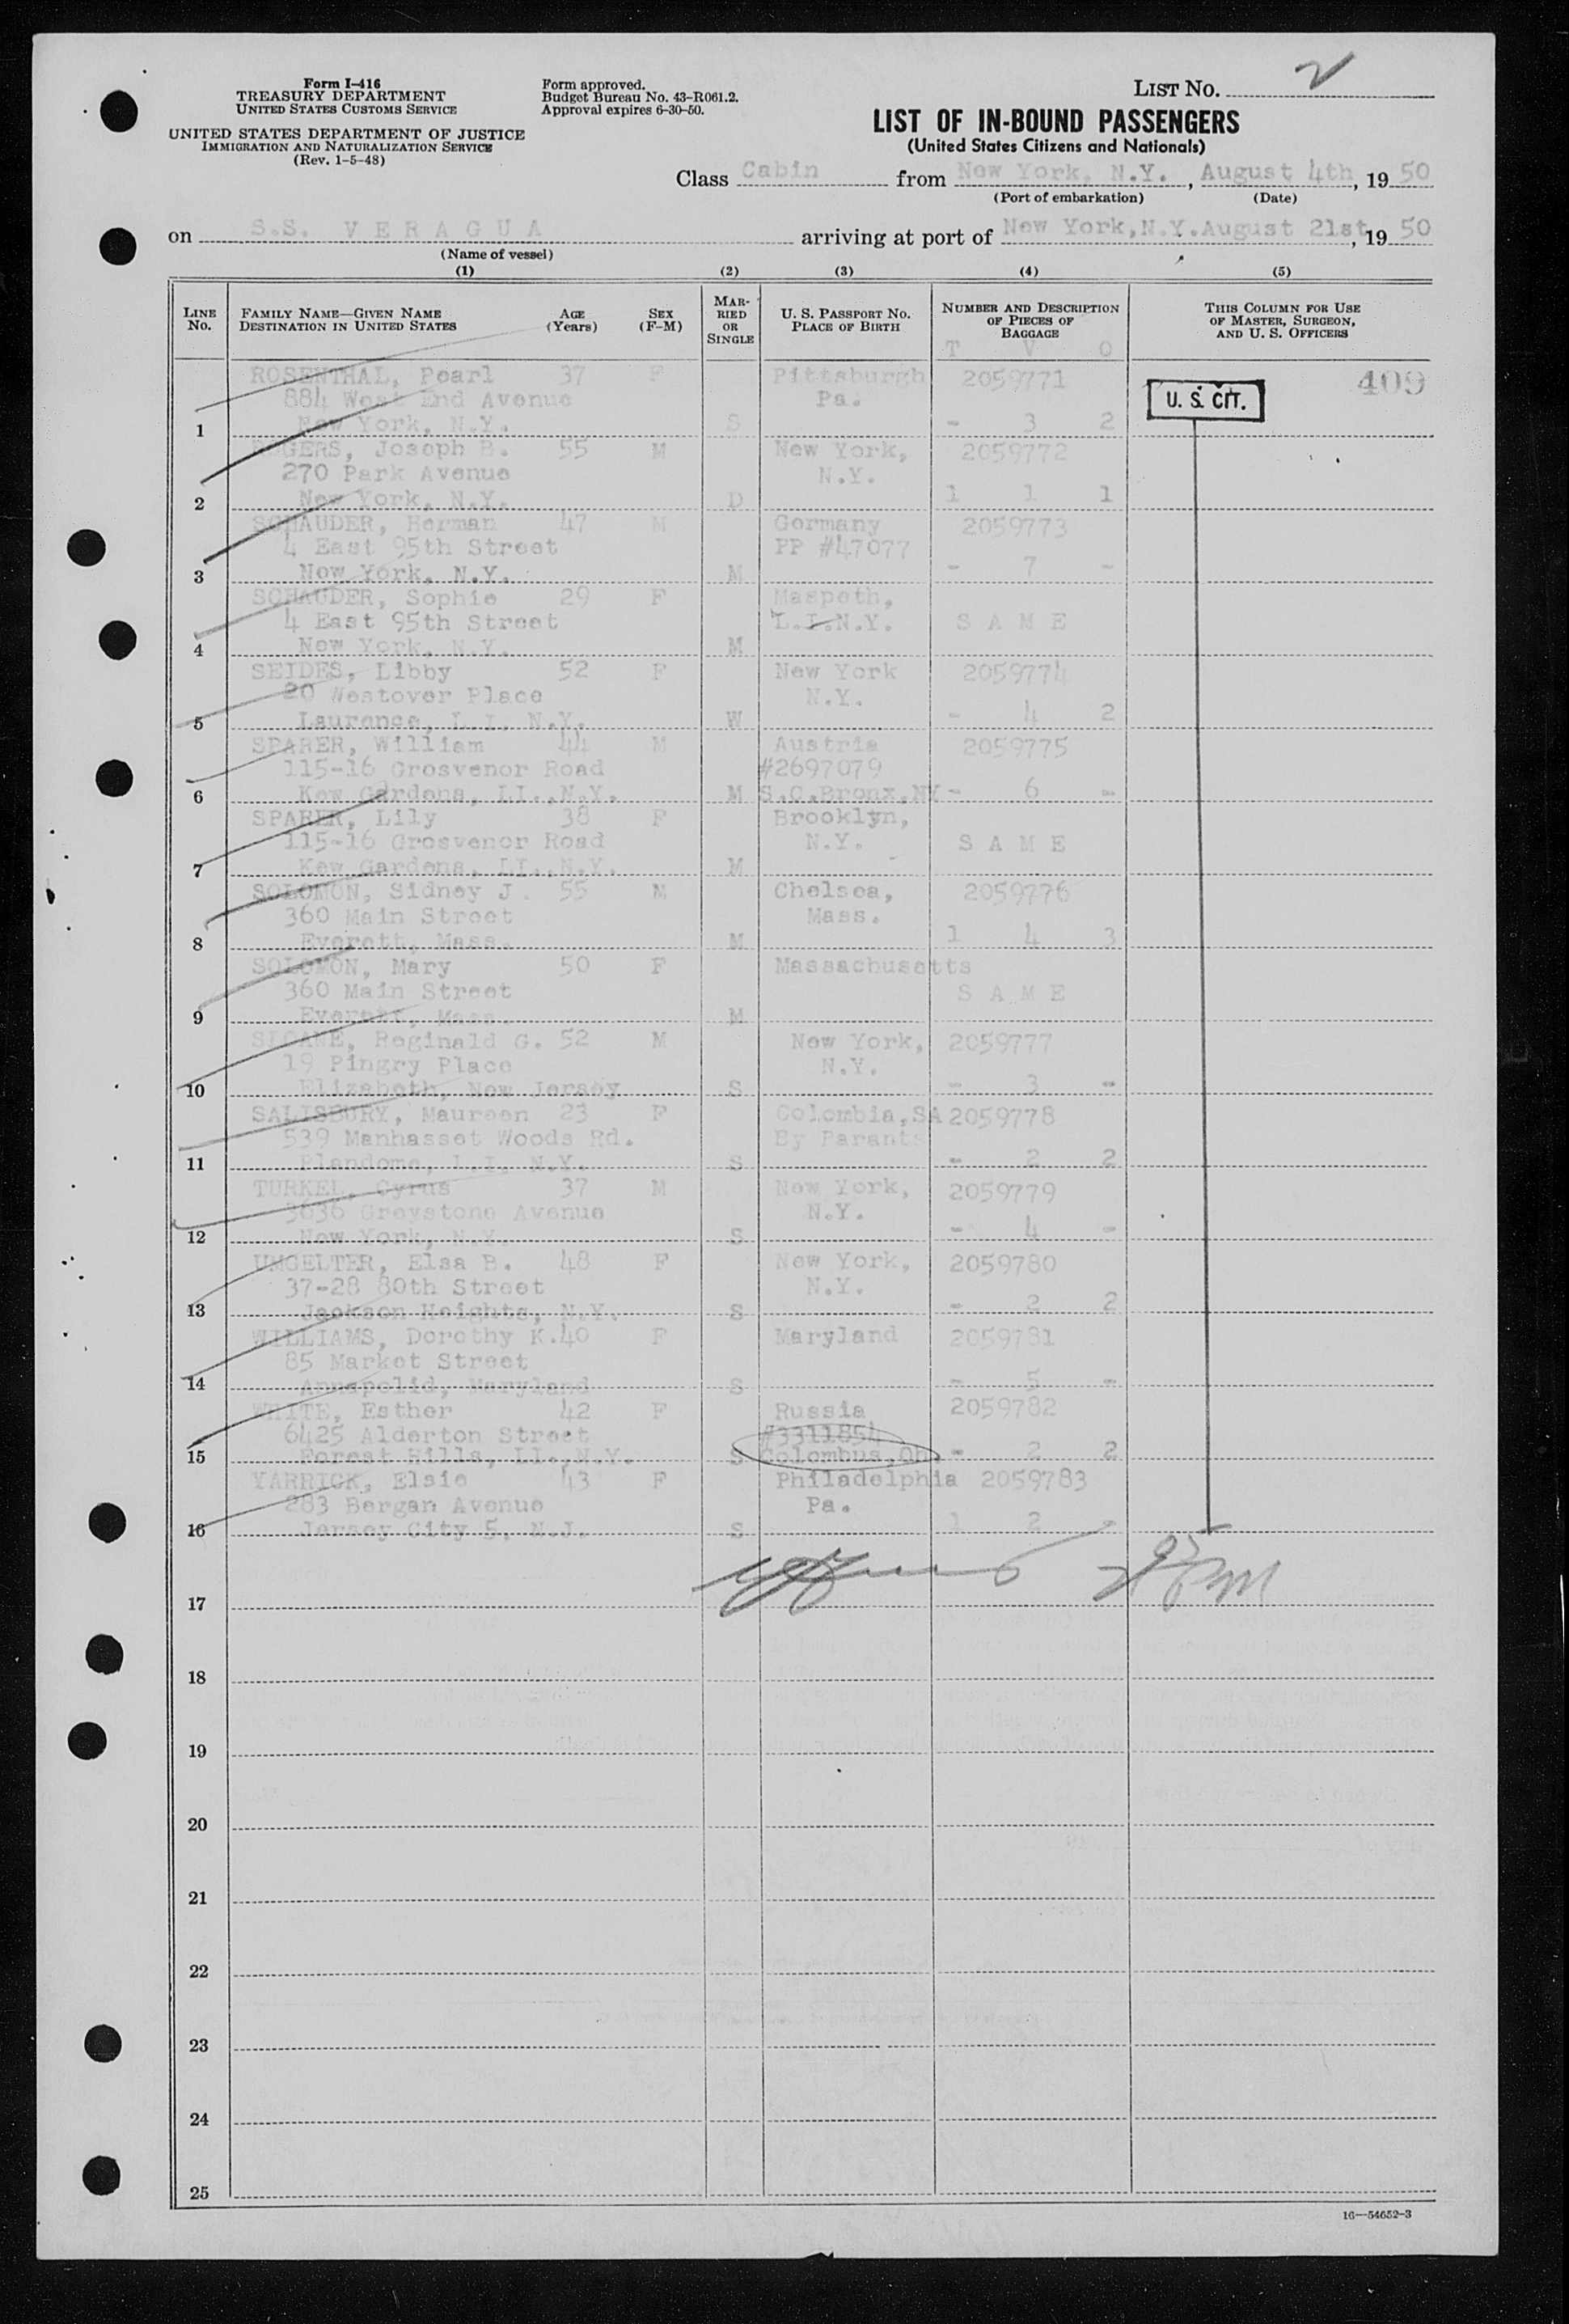 Form I-416
TREASURY DEPARTMENT
UNITED STATES CUSTOMS SERVICE
UNITED STATES DEPARTMENT OF JUSTICE
IMMIGRATION AND NATURALIZATION SERVICE
(Rev. 1-5-48)
Form approved.
Budget Bureau No. 43-R061.2.
Approval expires 6-30-50.
LIST NO. 2
LIST OF IN-BOUND PASSENGERS
(United States Citizens and Nationals)
Class Cabin from New York, N.Y., August 4th, 19 50
(Port of embarkation) (Date)
on S.S. VERAGUA arriving at port of New York, N.Y. August 21st, 19 50
(Name of vessel)
(1) (2) (3) (4) (5)
LINE NO. FAMILY NAME—GIVEN NAME DESTINATION IN UNITED STATES AGE (Years) SEX (F-M) MARRIED OR SINGLE U. S. PASSPORT NO. PLACE OF BIRTH NUMBER AND DESCRIPTION OF PIECES OF BAGGAGE THIS COLUMN FOR USE OF MASTER, SURGEON, AND U. S. OFFICERS
T V O
ROSENTHAL, Pearl 37 F Pittsburgh 2059771 409
884 West End Avenue Pa. U. S. CIT.
1 New York, N.Y. S - 3 2
ROGERS, Joseph B. 55 M New York, 2059772
270 Park Avenue N.Y.
2 New York, N.Y. D 1 1 1
SCHAUDER, Herman 47 M Germany 2059773
4 East 95th Street PP #47077
3 New York, N.Y. M - 7 -
SCHAUDER, Sophie 29 F Maspeth,
4 East 95th Street L.I.N.Y. S A M E
4 New York, N.Y. M
SEIDES, Libby 52 F New York 2059774
20 Westover Place N.Y.
5 Laurence, L.I. N.Y. W - 4 2
SPARER, William 44 M Austria 2059775
115-16 Grosvenor Road #2697079
6 Kew Gardens, LI.,N.Y. M S.C.Bronx,NY - 6 -
SPARER, Lily 38 F Brooklyn,
115-16 Grosvenor Road N.Y. S A M E
7 Kew Gardens, LI.,N.Y. M
SOLOMON, Sidney J. 55 M Chelsea, 2059776
360 Main Street Mass.
8 Everett, Mass. M 1 4 3
SOLOMON, Mary 50 F Massachusetts
360 Main Street S A M E
9 Everett, Mass. M
SLOANE, Reginald G. 52 M New York, 2059777
19 Pingry Place N.Y.
10 Elizabeth, New Jersey S - 3 -
SALISBURY, Maureen 23 F Colombia,SA 2059778
539 Manhasset Woods Rd. By Parents
11 Plandome, L.I. N.Y. S - 2 2
TURKEL, Cyrus 37 M New York, 2059779
3636 Greystone Avenue N.Y.
12 New York, N.Y. S - 4 -
UMGELTER, Elsa B. 48 F New York, 2059780
37-28 80th Street N.Y.
13 Jackson Heights, N.Y. S - 2 2
WILLIAMS, Dorothy K. 40 F Maryland 2059781
85 Market Street
14 Annapolid, Maryland S - 5 -
WHITE, Esther 42 F Russia 2059782
6425 Alderton Street #3311854
15 Forest Hills, LI.,N.Y. S Colombus,Oh. - 2 2
YARRICK, Elsie 43 F Philadelphia 2059783
283 Bergan Avenue Pa.
16 Jersey City 5, N.J. S 1 2 -
17
18
19
20
21
22
23
24
25
16—54652-3